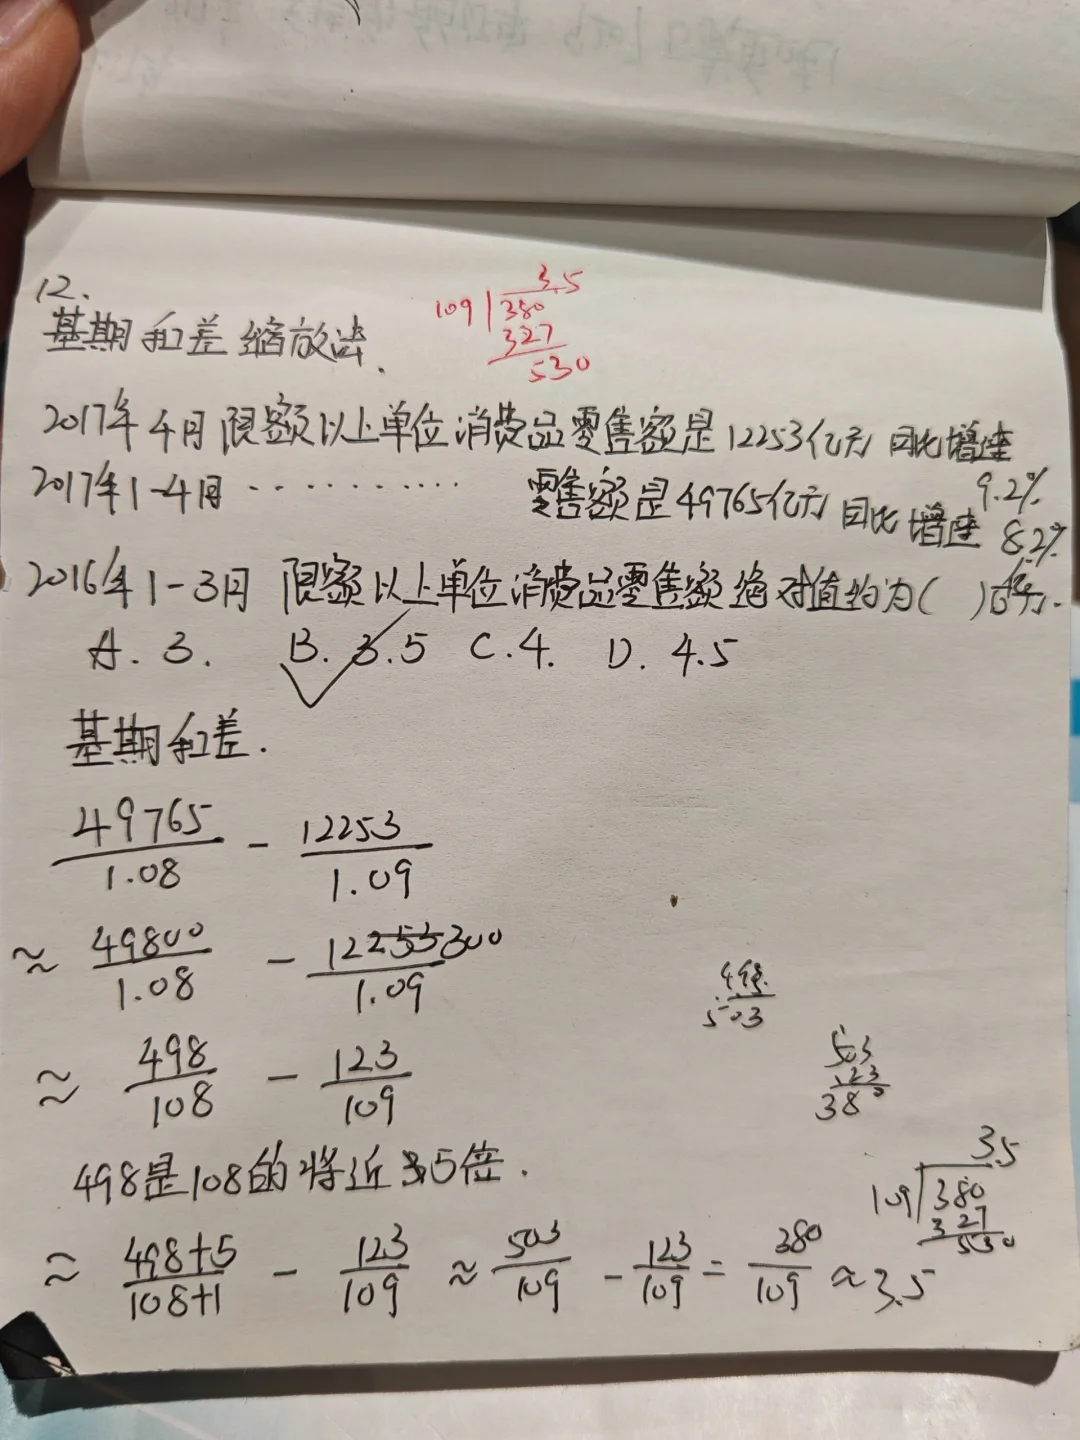 12.
基期和差缩放法.
3.5
109 380
327
530
2017年4月限额以上单位消费品零售额是12253亿元 同比增速 9.2%
2017年1-4月 ··········· 零售额是49765亿元 同比增速 8.2%
2016年1-3月 限额以上单位消费品零售额绝对值约为( )亿元.
A. 3. B. 3.5 C. 4. D. 4.5
基期和差.
49765/1.08 - 12253/1.09
≈ 49800/1.08 - 12300/1.09
≈ 498/108 - 123/109
498
503
503
123
380
498是108的将近5倍.
3.5
109 380
327
530
≈ 498+5/108+1 - 123/109 ≈ 503/109 - 123/109 = 380/109 ≈ 3.5